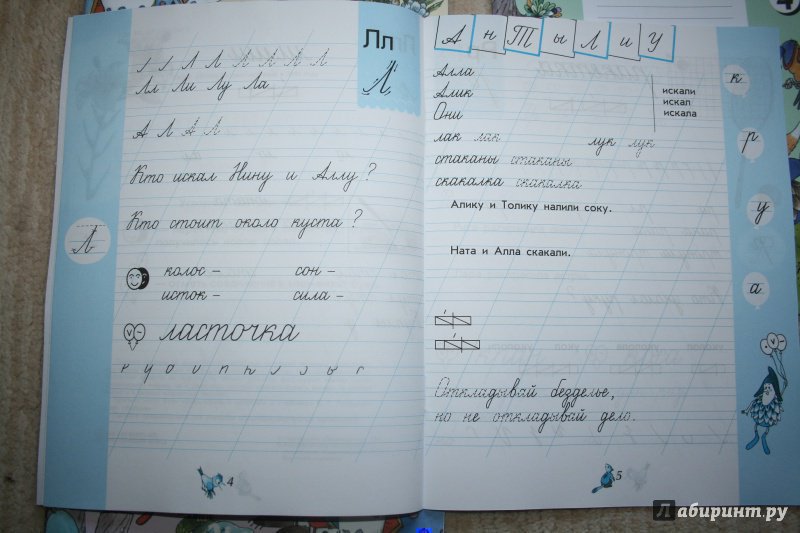 Лл
Л
Л Л Л Л Л Л
Лл Ли Лу Ла
А Л А Л
Кто искал Нину и Аллу?
Кто стоит около куста?
Л
колос – сон –
исток – сила –
ласточка
4
А н Т ы Л и У
Алла
Алик
Они
искали
искал
искала
лак лак лук лук
стаканы стаканы
скакалка скакалка
Алику и Толику налили соку.
Ната и Алла скакали.
Откладывай безделье,
но не откладывай дело.
5
к
р
у
а
4
Лабиринт.ру